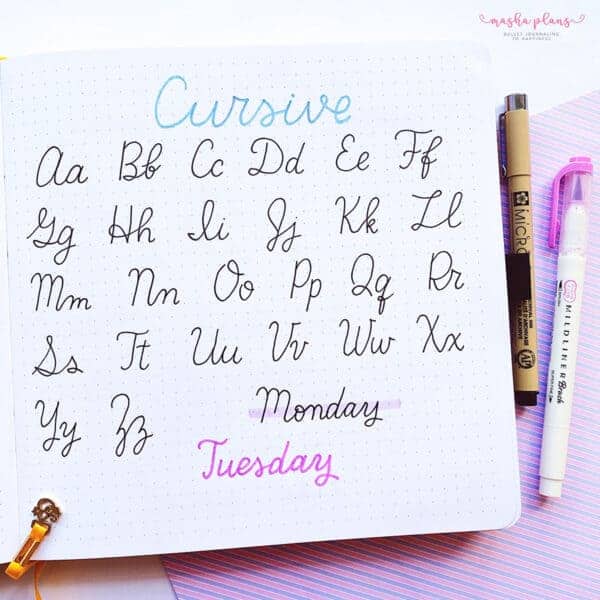 masha plans
BULLET JOURNALING
TO HAPPINESS
Cursive
Aa Bb Cc Dd Ee Ff
Gg Hh Ii Jj Kk Ll
Mm Nn Oo Pp Qq Rr
Ss Tt Uu Vv Ww Xx
Yy Zz
Monday
Tuesday
MICRON
MILDLINER Brush